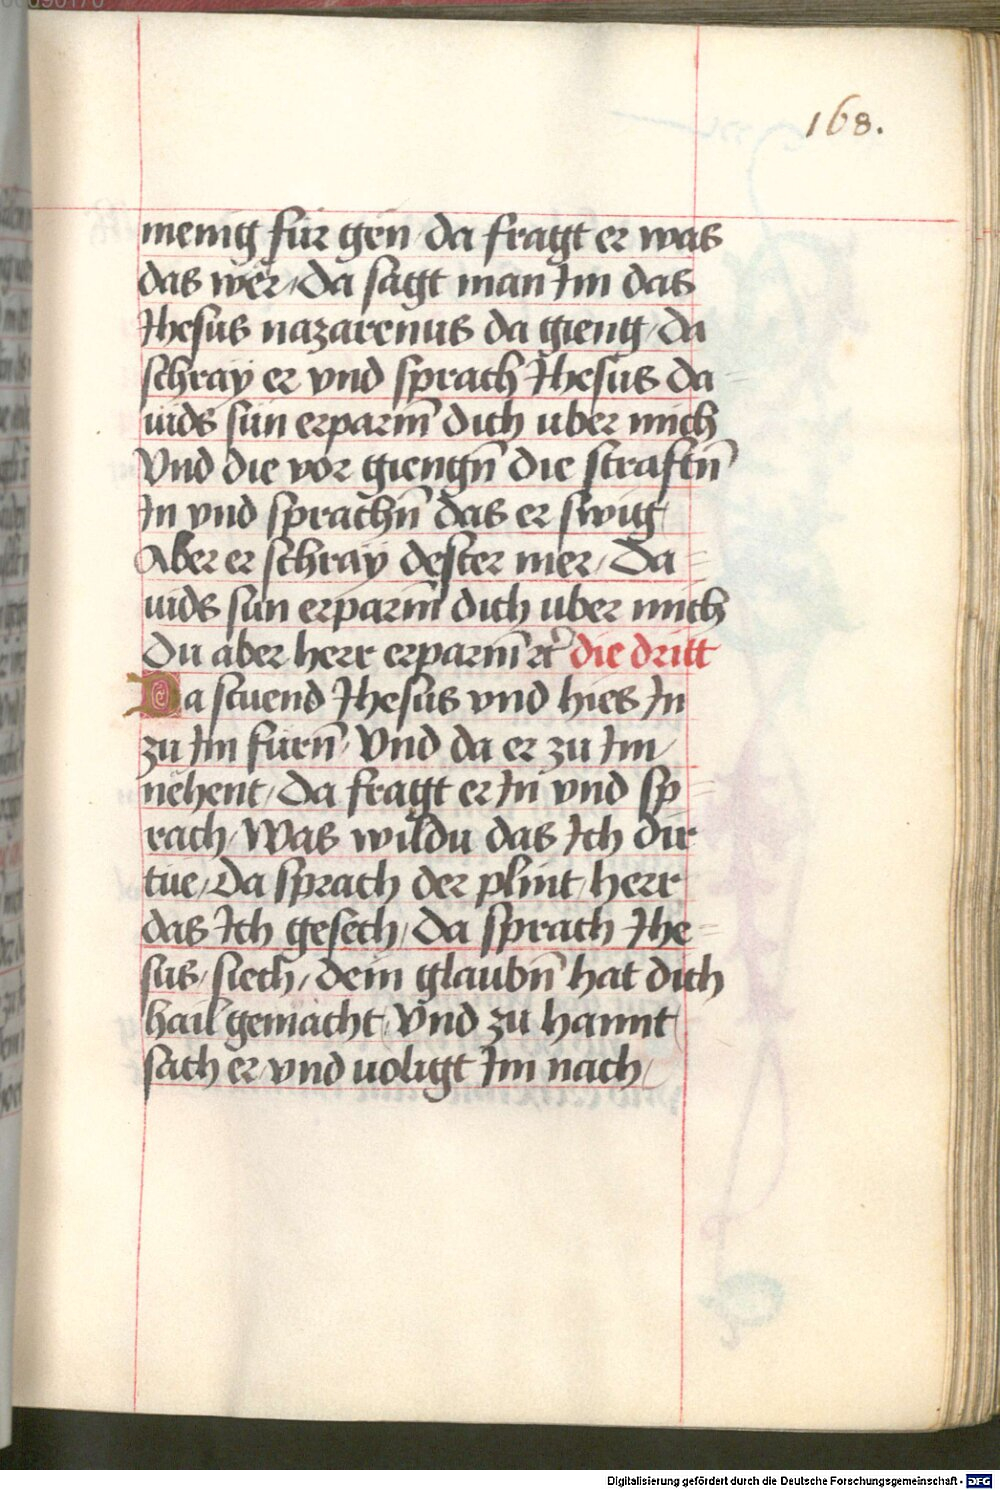 168.
menig für gen da fragt er was
das wër / Da sagt man Im das
Ihesus nazarenus da gieng / Da
schray er vnd sprach Ihesus Da=
uids sün erparm̄ dich uber mich
Vnd die vor giengn̄ die straftn̄
In vnd sprachn̄ das er swig
Aber er schray dester mer / Da=
uids sün erparm̄ dich uber mich
Du aber herr erparm̄ ꝛc̄ die dritt
Da stuend Ihesus vnd hies In
zu Im fürn̄ / Vnd da er zu Im /
nëhent / Da fragt er In vnd sp=
rach / Was wildu das Ich dir
tüe / Da sprach der plint / herr
das Ich gesech / Da sprach Ihe=
sus / siech / dein glaubn̄ hat dich
hail gemacht / Vnd zu hannt
sach er / vnd uoligt Im nach /
Digitalisierung gefördert durch die Deutsche Forschungsgemeinschaft - DFG